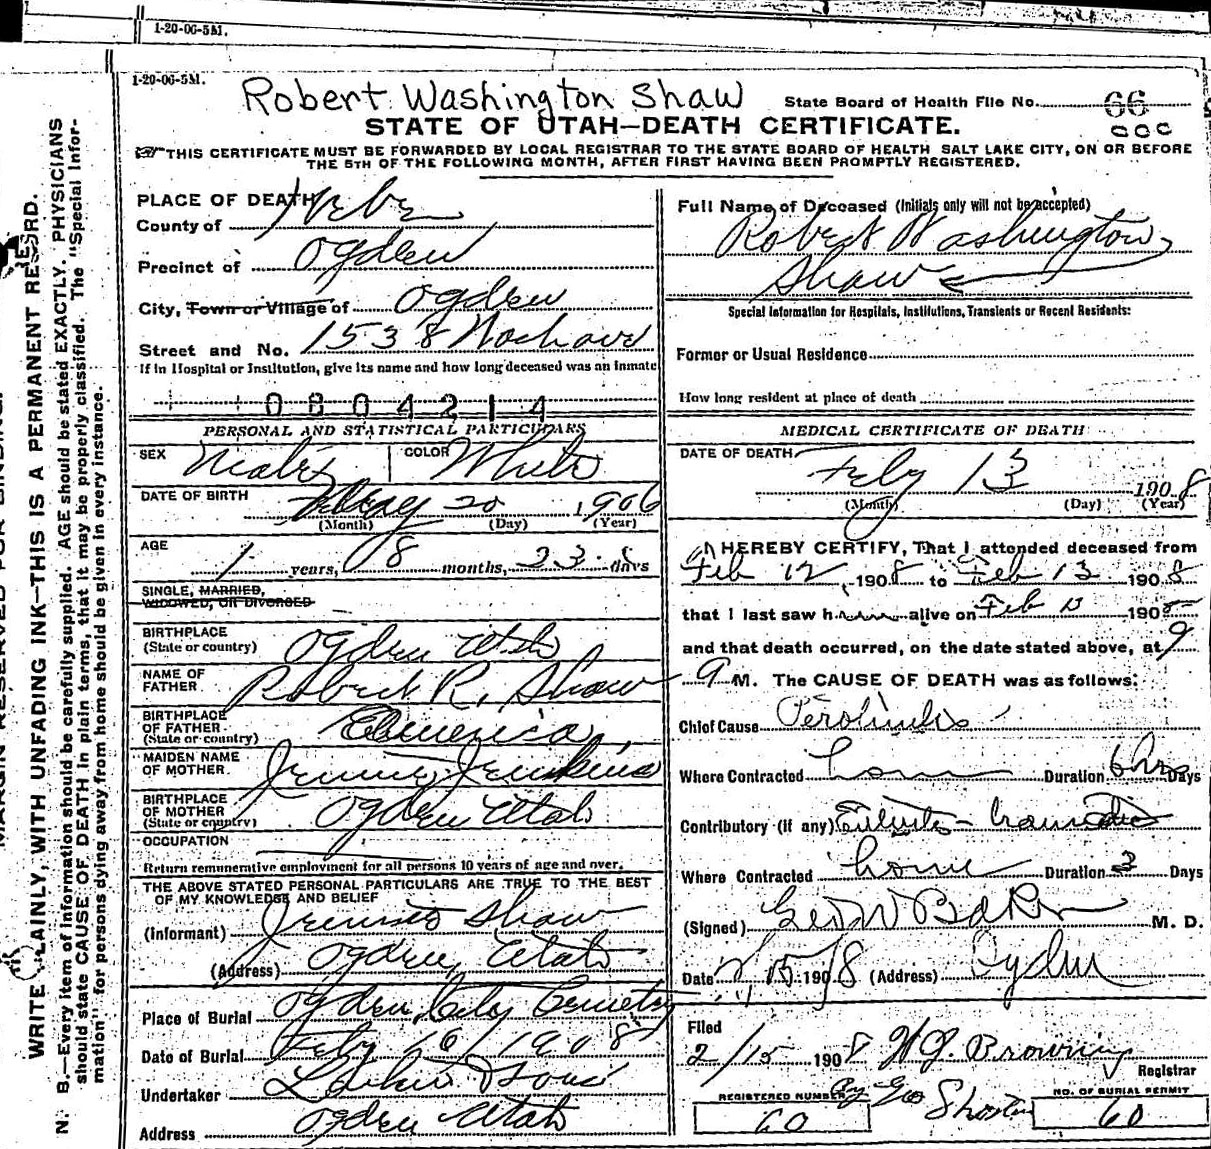 1-20-06-5M.
1-20-06-5M.
Robert Washington Shaw
State Board of Health File No. 66
STATE OF UTAH—DEATH CERTIFICATE.
THIS CERTIFICATE MUST BE FORWARDED BY LOCAL REGISTRAR TO THE STATE BOARD OF HEALTH SALT LAKE CITY, ON OR BEFORE
THE 5TH OF THE FOLLOWING MONTH, AFTER FIRST HAVING BEEN PROMPTLY REGISTERED.
WRITE PLAINLY, WITH UNFADING INK—THIS IS A PERMANENT RECORD.
N. B.—Every item of information should be carefully supplied. AGE should be stated EXACTLY. PHYSICIANS
should state CAUSE OF DEATH in plain terms, that it may be properly classified. The "Special Infor-
mation" for persons dying away from home should be given in every instance.
PLACE OF DEATH
County of Weber
Precinct of Ogden
City, Town or Village of Ogden
Street and No. 1538
If in Hospital or Institution, give its name and how long deceased was an inmate
0804214
PERSONAL AND STATISTICAL PARTICULARS
SEX Male COLOR White
DATE OF BIRTH 20 1906
(Month) (Day) (Year)
AGE 1 years, 8 months, 23 days
SINGLE, MARRIED,
WIDOWED, OR DIVORCED
BIRTHPLACE Ogden Utah
(State or country)
NAME OF
FATHER Robert R. Shaw
BIRTHPLACE
OF FATHER America
(State or country)
MAIDEN NAME
OF MOTHER Jennie Jenkins
BIRTHPLACE
OF MOTHER Ogden Utah
(State or country)
OCCUPATION
Return remunerative employment for all persons 10 years of age and over.
THE ABOVE STATED PERSONAL PARTICULARS ARE TRUE TO THE BEST
OF MY KNOWLEDGE AND BELIEF
(Informant) Jennie Shaw
(Address) Ogden, Utah
Place of Burial Ogden City Cemetery
Date of Burial Feby 16 1908
Undertaker Larkin & Sons
Address Ogden Utah
Full Name of Deceased (Initials only will not be accepted)
Robert Washington
Shaw
Special Information for Hospitals, Institutions, Transients or Recent Residents:
Former or Usual Residence
How long resident at place of death
MEDICAL CERTIFICATE OF DEATH
DATE OF DEATH
Feby 13 1908
(Month) (Day) (Year)
I HEREBY CERTIFY, That I attended deceased from
Feb 12, 1908 to Feb 13 1908
that I last saw h alive on Feb 13 1908
and that death occurred, on the date stated above, at 9
M. The CAUSE OF DEATH was as follows:
Chief Cause Peritonitis
Where Contracted home Duration 6 hrs Days
Contributory (if any)
Where Contracted home Duration 3 Days
(Signed) Geo W Baker M. D.
Date 2/15 1908 (Address) Ogden
Filed
2/15 1908 Browning
Registrar
By Geo Shorten
REGISTERED NUMBER NO. OF BURIAL PERMIT
60 60